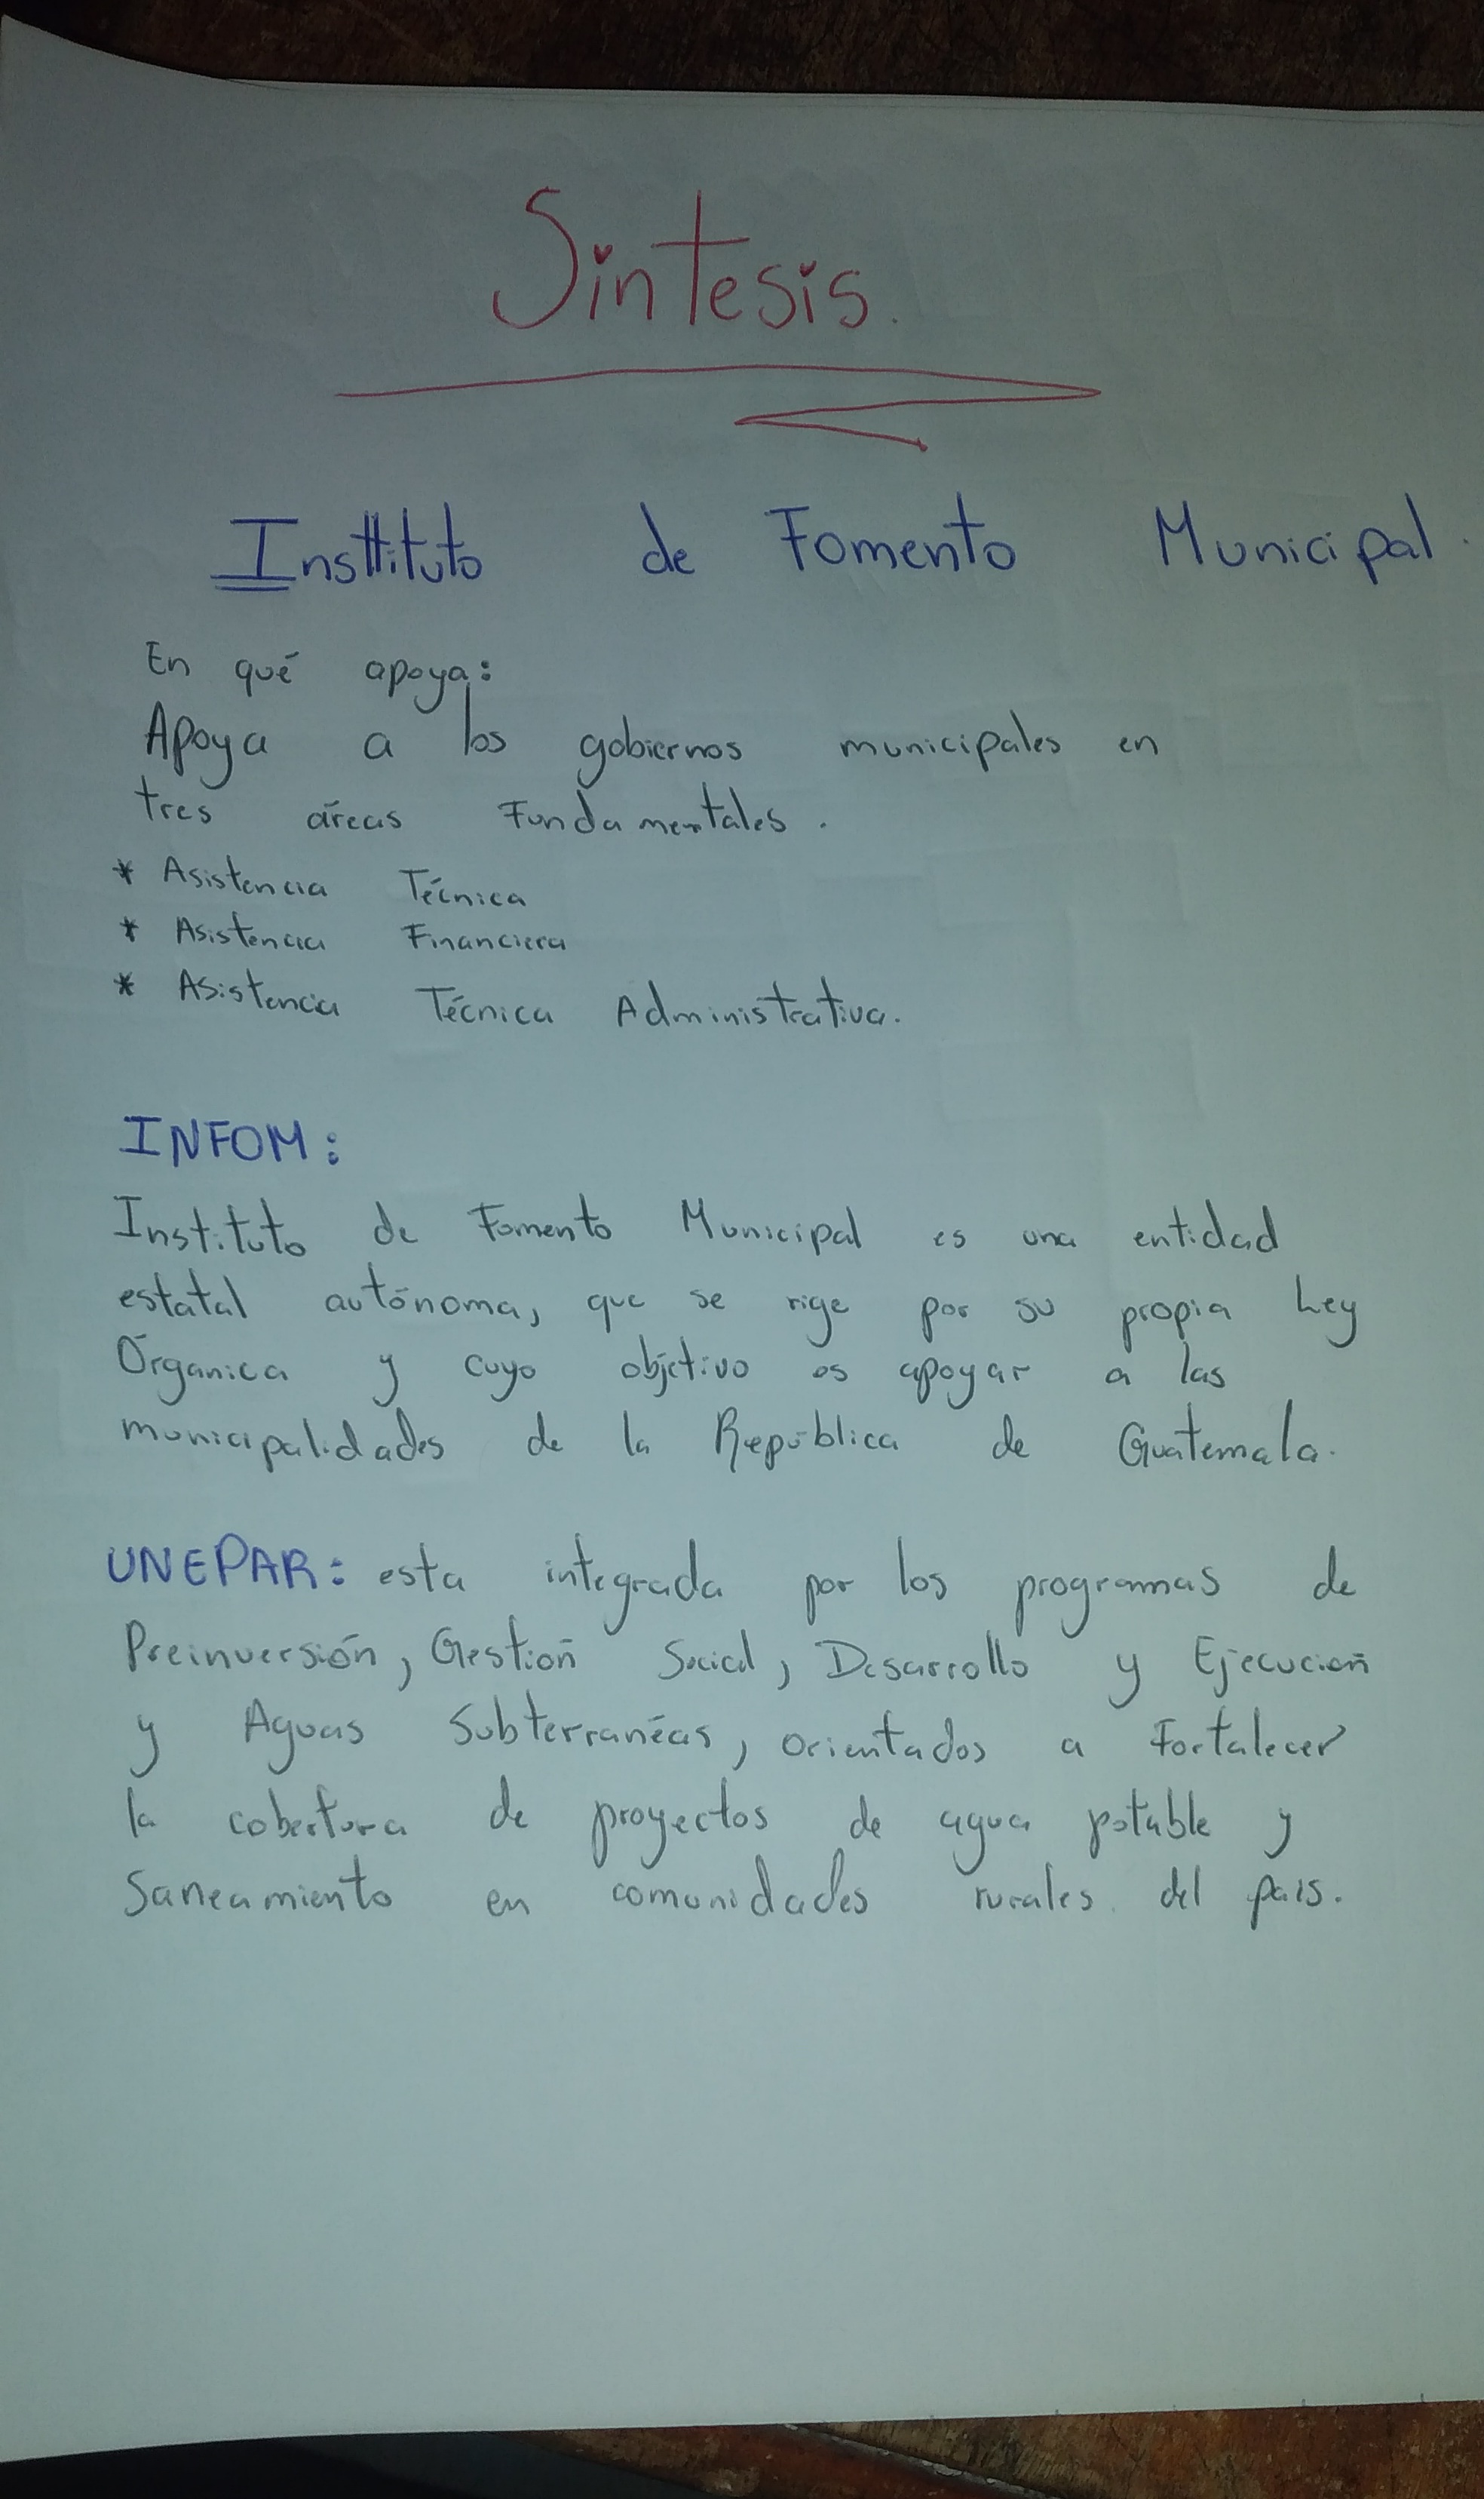 Sintesis.
Insttituto de Fomento Municipal.
En qué apoya:
Apoya a los gobiernos municipales en
tres aréas Fundamentales.
* Asistencia Técnica
* Asistencia Financiera
* Asistencia Técnica Administrativa.
INFOM:
Instituto de Fomento Municipal es una entidad
estatal autónoma, que se rige por su propia Ley
Órganica y cuyo objetivo es apoyar a las
municipalidades de la República de Guatemala.
UNEPAR: esta integrada por los programas de
Preinversión, Gestión Social, Desarrollo y Ejecución
y Aguas Subterranéas, orientados a Fortalecer
la cobertura de proyectos de agua potable y
Saneamiento en comunidades rurales del pais.